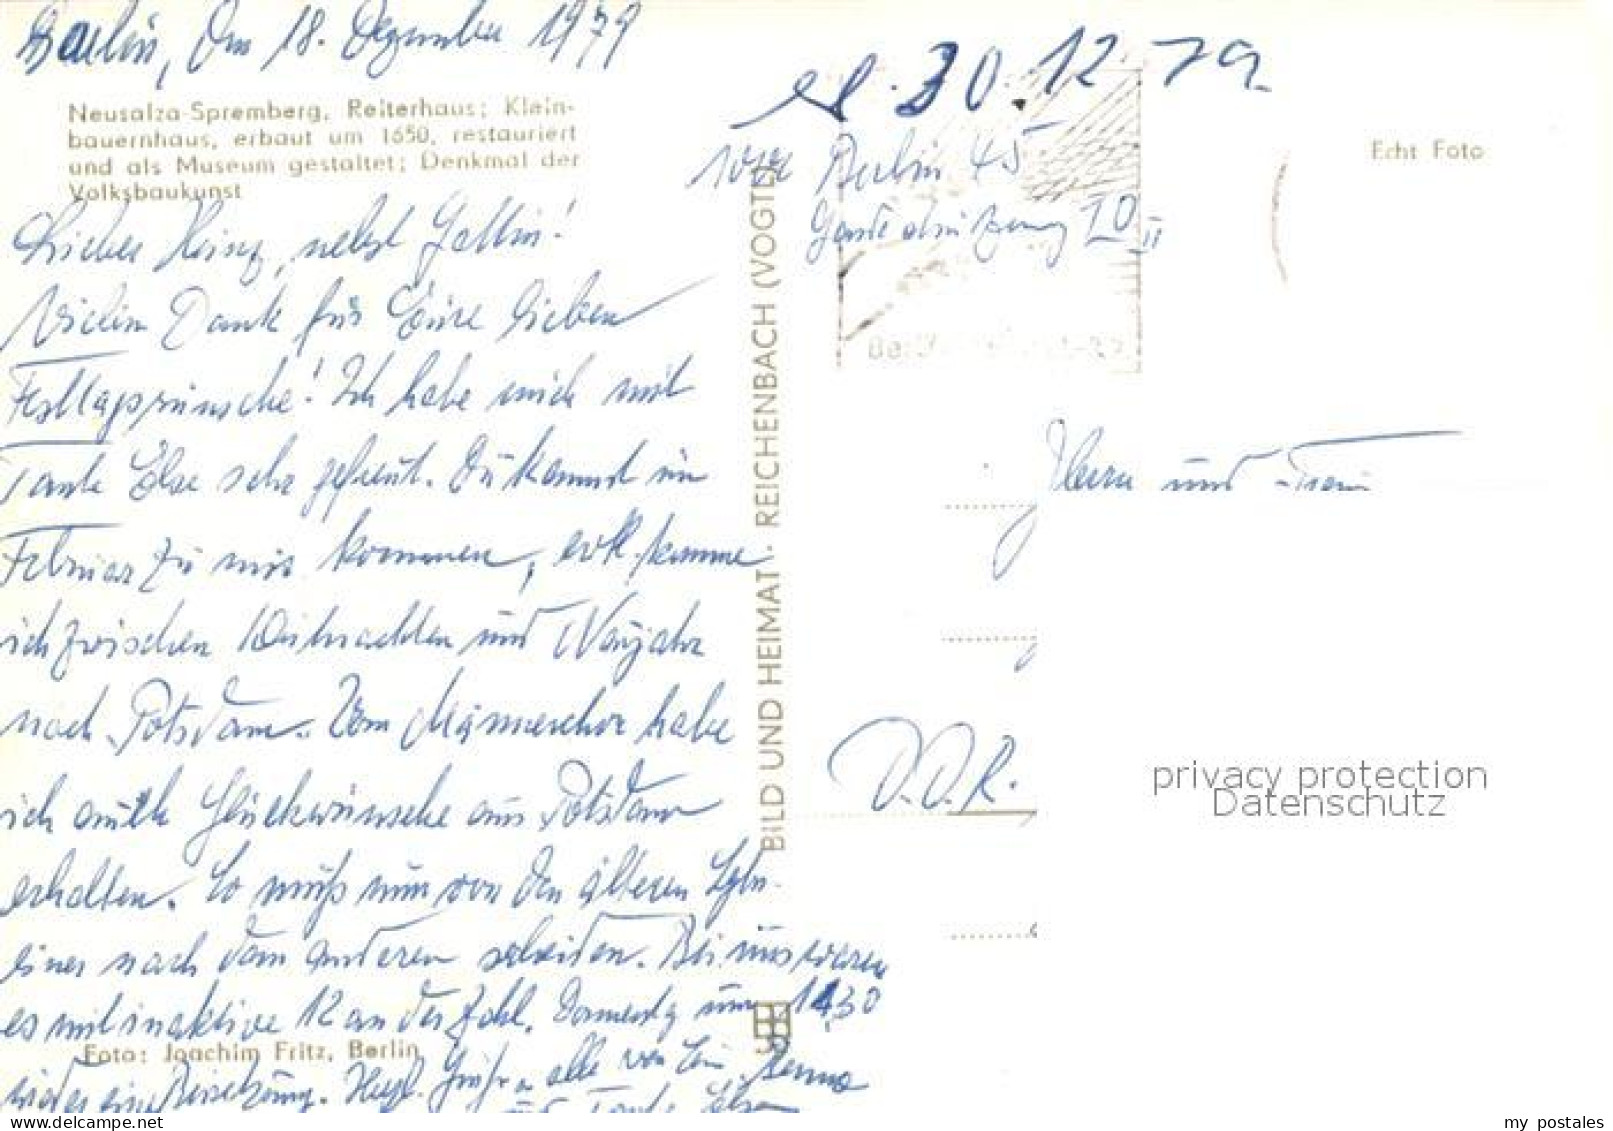 Berlin, den 18. Dezember 1979
Neusalza-Spremberg, Reiterhaus; Klein-
bauernhaus, erbaut um 1650, restauriert
und als Museum gestaltet; Denkmal der
Volksbaukunst
Lieber Heinz, nebst Gattin!
Vielen Dank für Eure lieben
Festtagswünsche! Ich habe mich mit
Tante Else sehr gefreut. Du kannst im
Februar zu mir kommen, evtl. komme
ich zwischen Weihnachten und Neujahr
nach Potsdam. Vom Männerchor habe
ich auch Glückwünsche aus Potsdam
erhalten. So muß nun von den älteren
einer nach dem anderen scheiden. Bei uns waren
es mit inaktive 12 an der Zahl. um 1430
wieder eine Herzl. Grüße alle von
und Tante Else
BILD UND HEIMAT · REICHENBACH (VOGTL)
Foto: Joachim Fritz, Berlin
30.12.79.
Berlin 45
10 II
Echt Foto
Herrn und Frau
D.D.R.
privacy protection
Datenschutz
my_postales